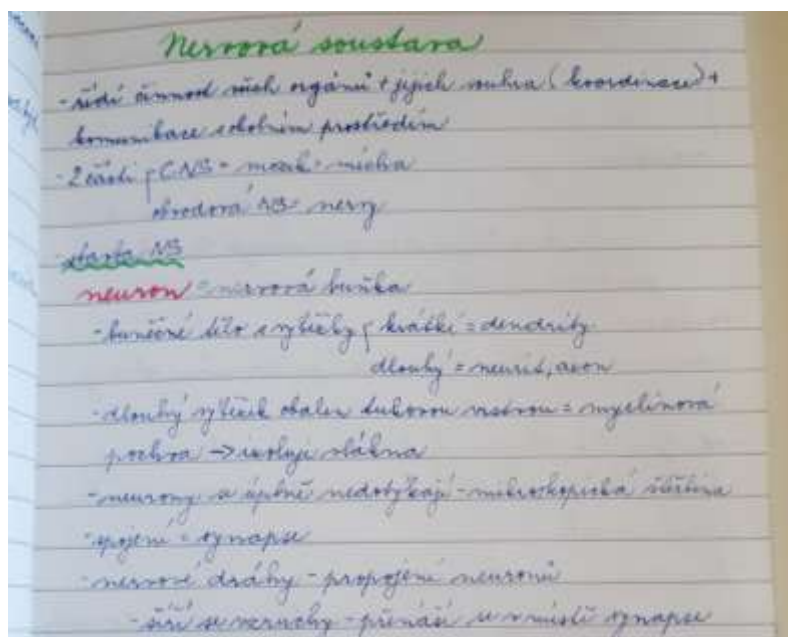 Nervová soustava
- řídí činnost všech orgánů + jejich souhra (koordinace) +
komunikace s okolním prostředím
- 2 části { CNS = mozek + mícha
obvodová NS = nervy
stavba NS
neuron = nervová buňka
- buněčné tělo s výběžky { krátké = dendrity
dlouhý = neurit, axon
- dlouhý výběžek obalen tukovou vrstvou = myelinová
pochva -> izoluje vlákna
- neurony se úplně nedotýkají - mikroskopická štěrbina
- spojení = synapse
- nervové dráhy - propojení neuronů
- šíří se vzruchy - přenáší se v místě synapse